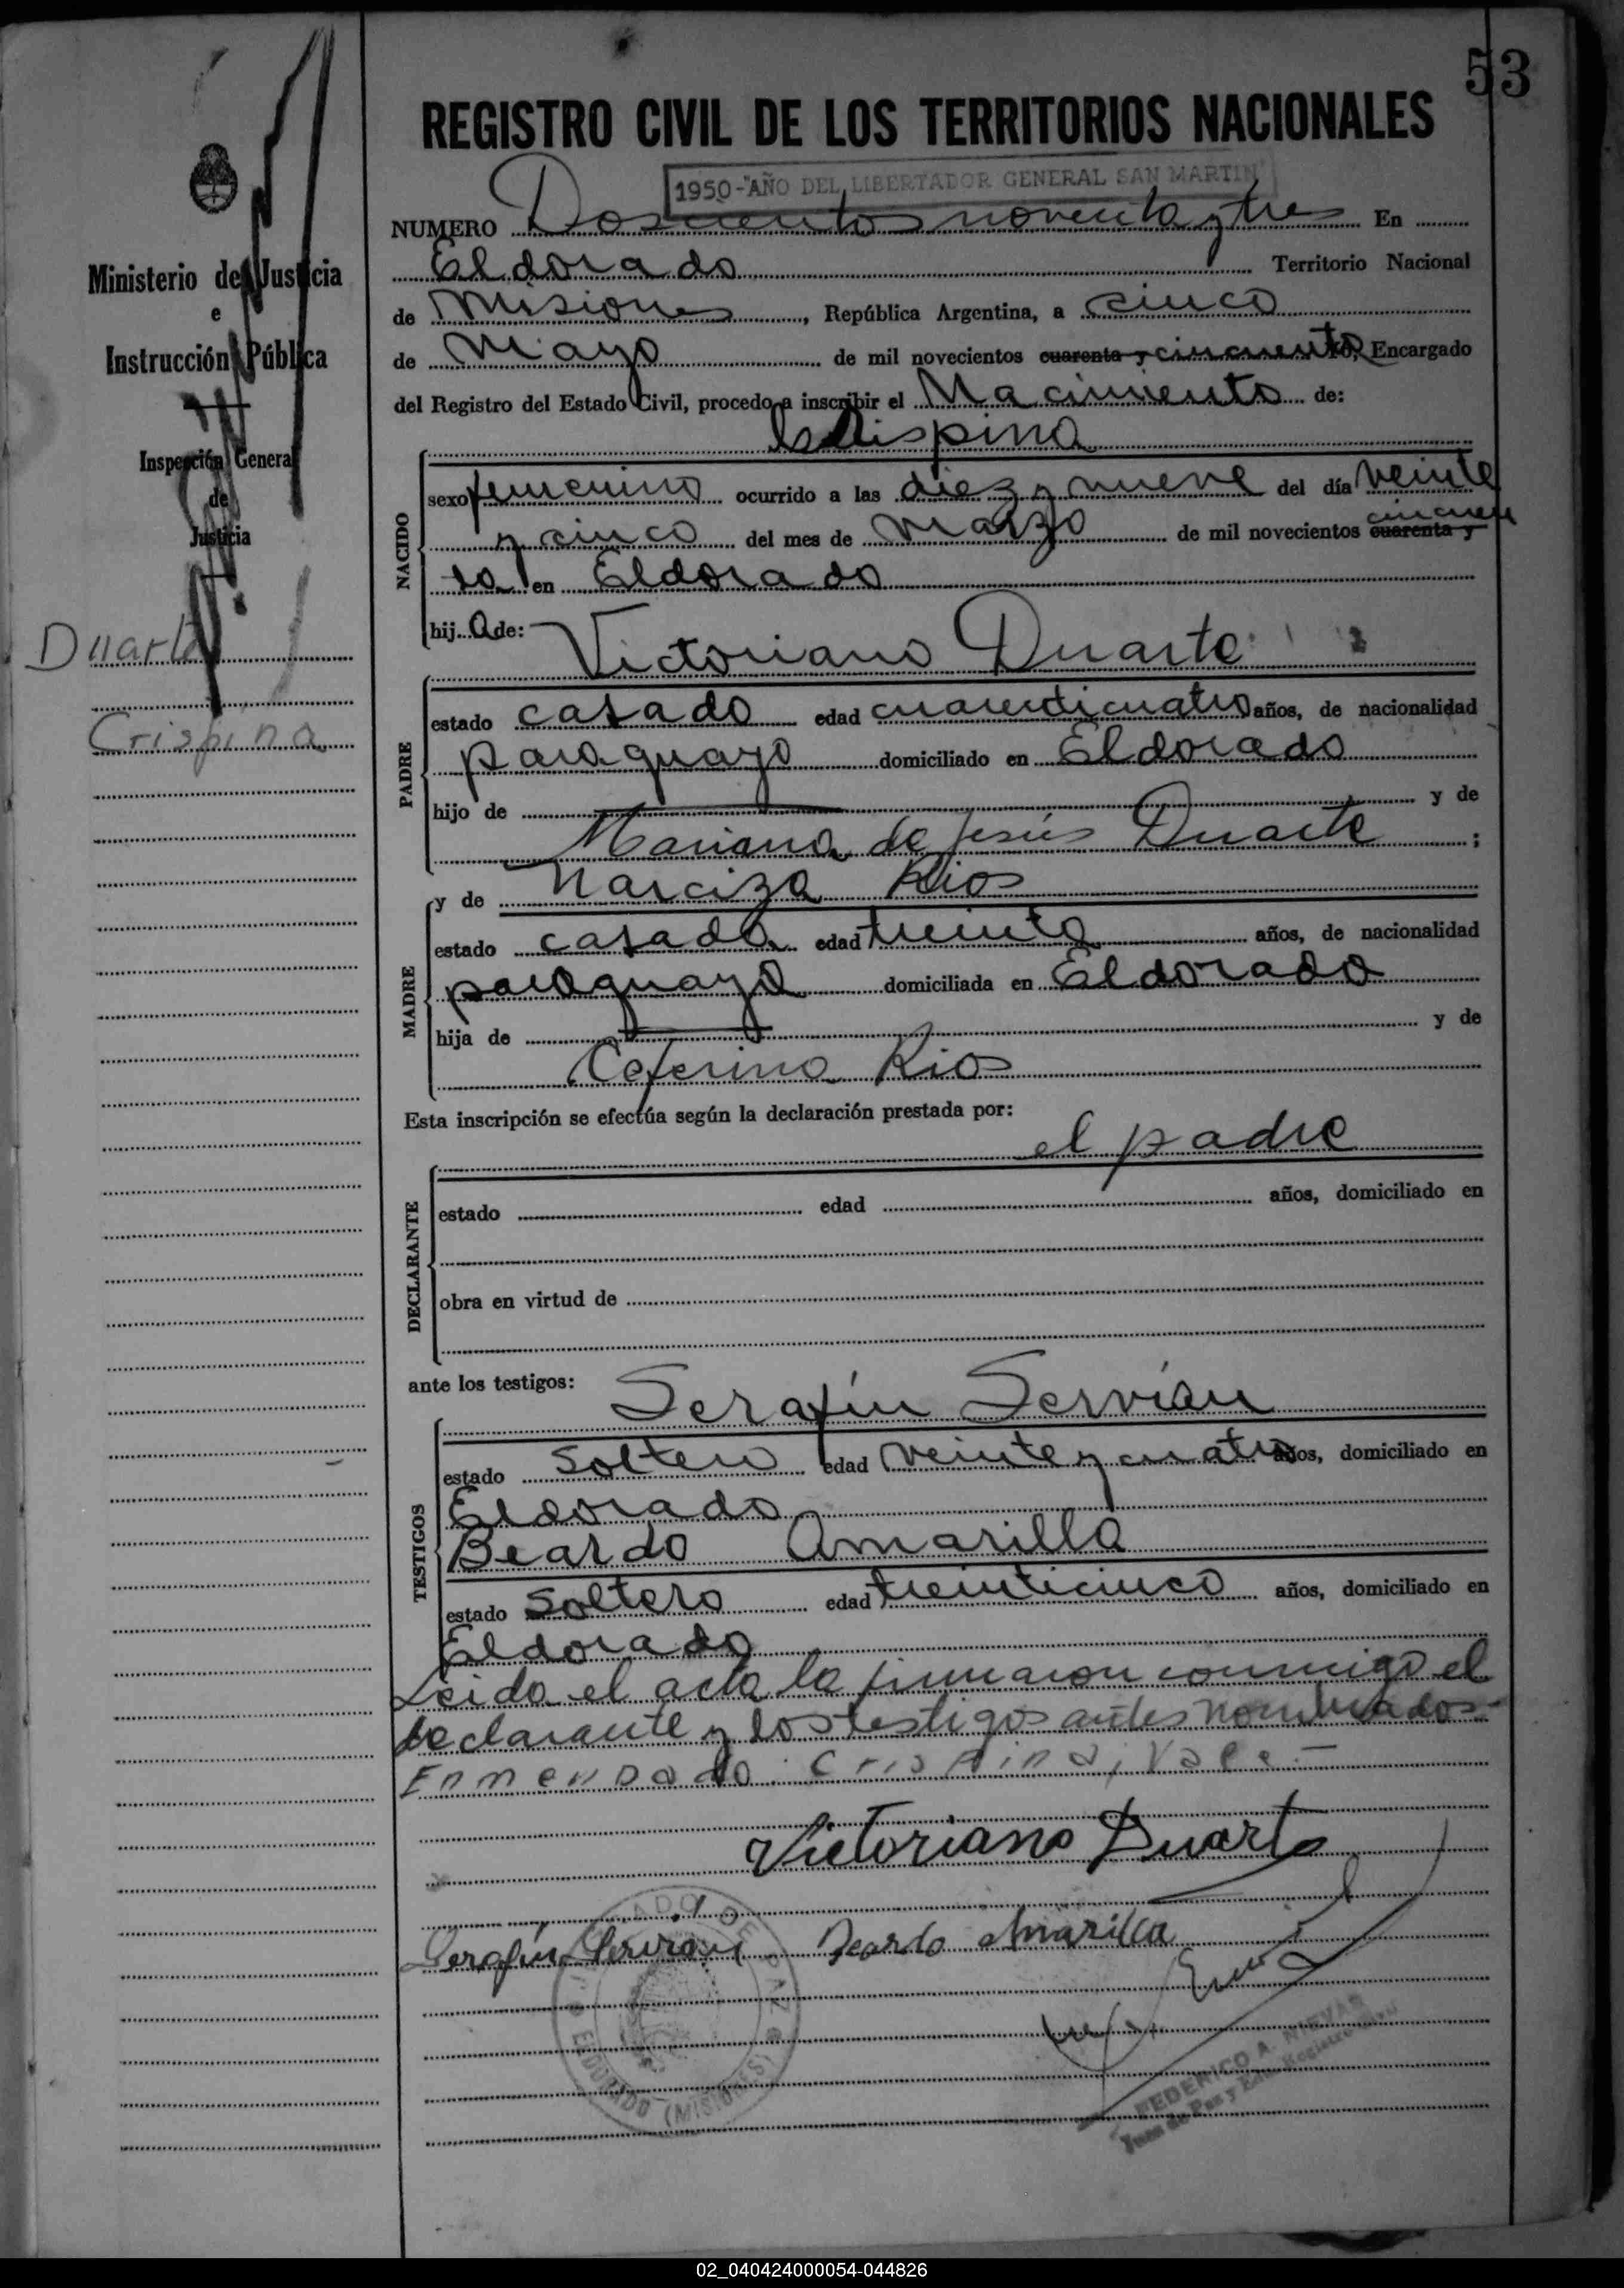 53
REGISTRO CIVIL DE LOS TERRITORIOS NACIONALES
1950-"AÑO DEL LIBERTADOR GENERAL SAN MARTIN"
NUMERO Doscientos noventa y tres En
Eldorado Territorio Nacional
de Misiones, República Argentina, a cinco
de Mayo de mil novecientos cuarenta y cincuenta, Encargado
del Registro del Estado Civil, procedo a inscribir el Nacimiento de:
Crispina
NACIDO
sexo femenino ocurrido a las diez y nueve del día veinte
y cinco del mes de Marzo de mil novecientos cuarenta y cincuen
ta en Eldorado
hija de:
Victoriano Duarte
PADRE
estado casado edad cuarenticuatro años, de nacionalidad
paraguayo domiciliado en Eldorado
hijo de y de
Mariana de Jesús Duarte ;
y de Narciza Rios
MADRE
estado casada edad treinta años, de nacionalidad
paraguaya domiciliada en Eldorado
hija de y de
Ceferina Rios
Esta inscripción se efectúa según la declaración prestada por:
el padre
DECLARANTE
estado edad años, domiciliado en
obra en virtud de
ante los testigos:
Serafín Servián
TESTIGOS
estado soltero edad veinte y cuatro años, domiciliado en
Eldorado
Beardo Amarilla
estado soltero edad treinticinco años, domiciliado en
Eldorado
Leida el acta la firmaron conmigo el
declarante y los testigos antes nombrados-
Enmendado: Crispina, Vale.-
Victoriano Duarte
Serafín Servián Beardo Amarilla
JUZGADO DE PAZ
ELDORADO (MISIONES)
FEDERICO A. NIEVAS
Juez de Paz y Enc. Registro Civil
Ministerio de Justicia
e
Instrucción Pública
Inspección General
de
Justicia
Duarte
Crispina
02_040424000054-044826